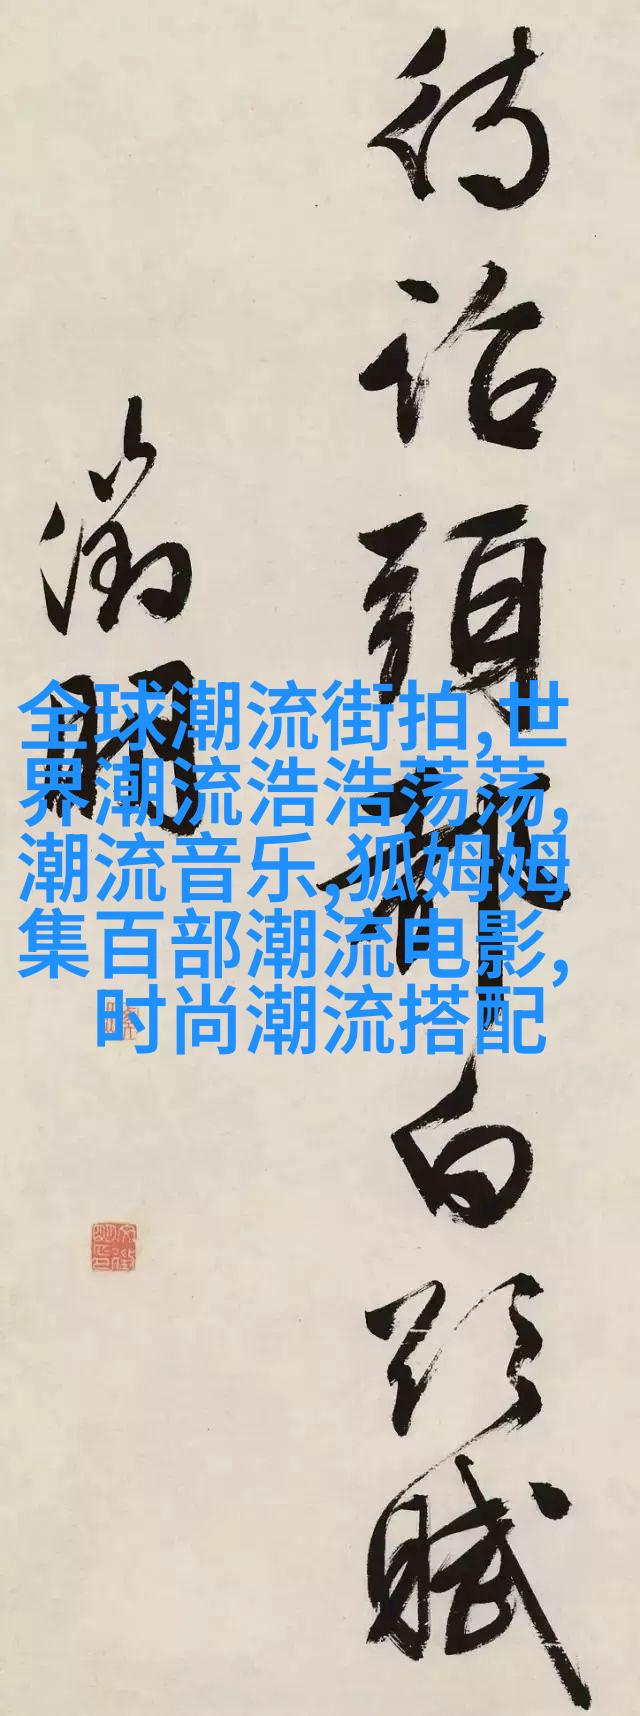 全球潮流街拍,世
界潮流浩浩荡荡,
潮流音乐,狐姆姆
集百部潮流电影,
时尚潮流搭配
待詔頭白賦
徵明
文徵明印